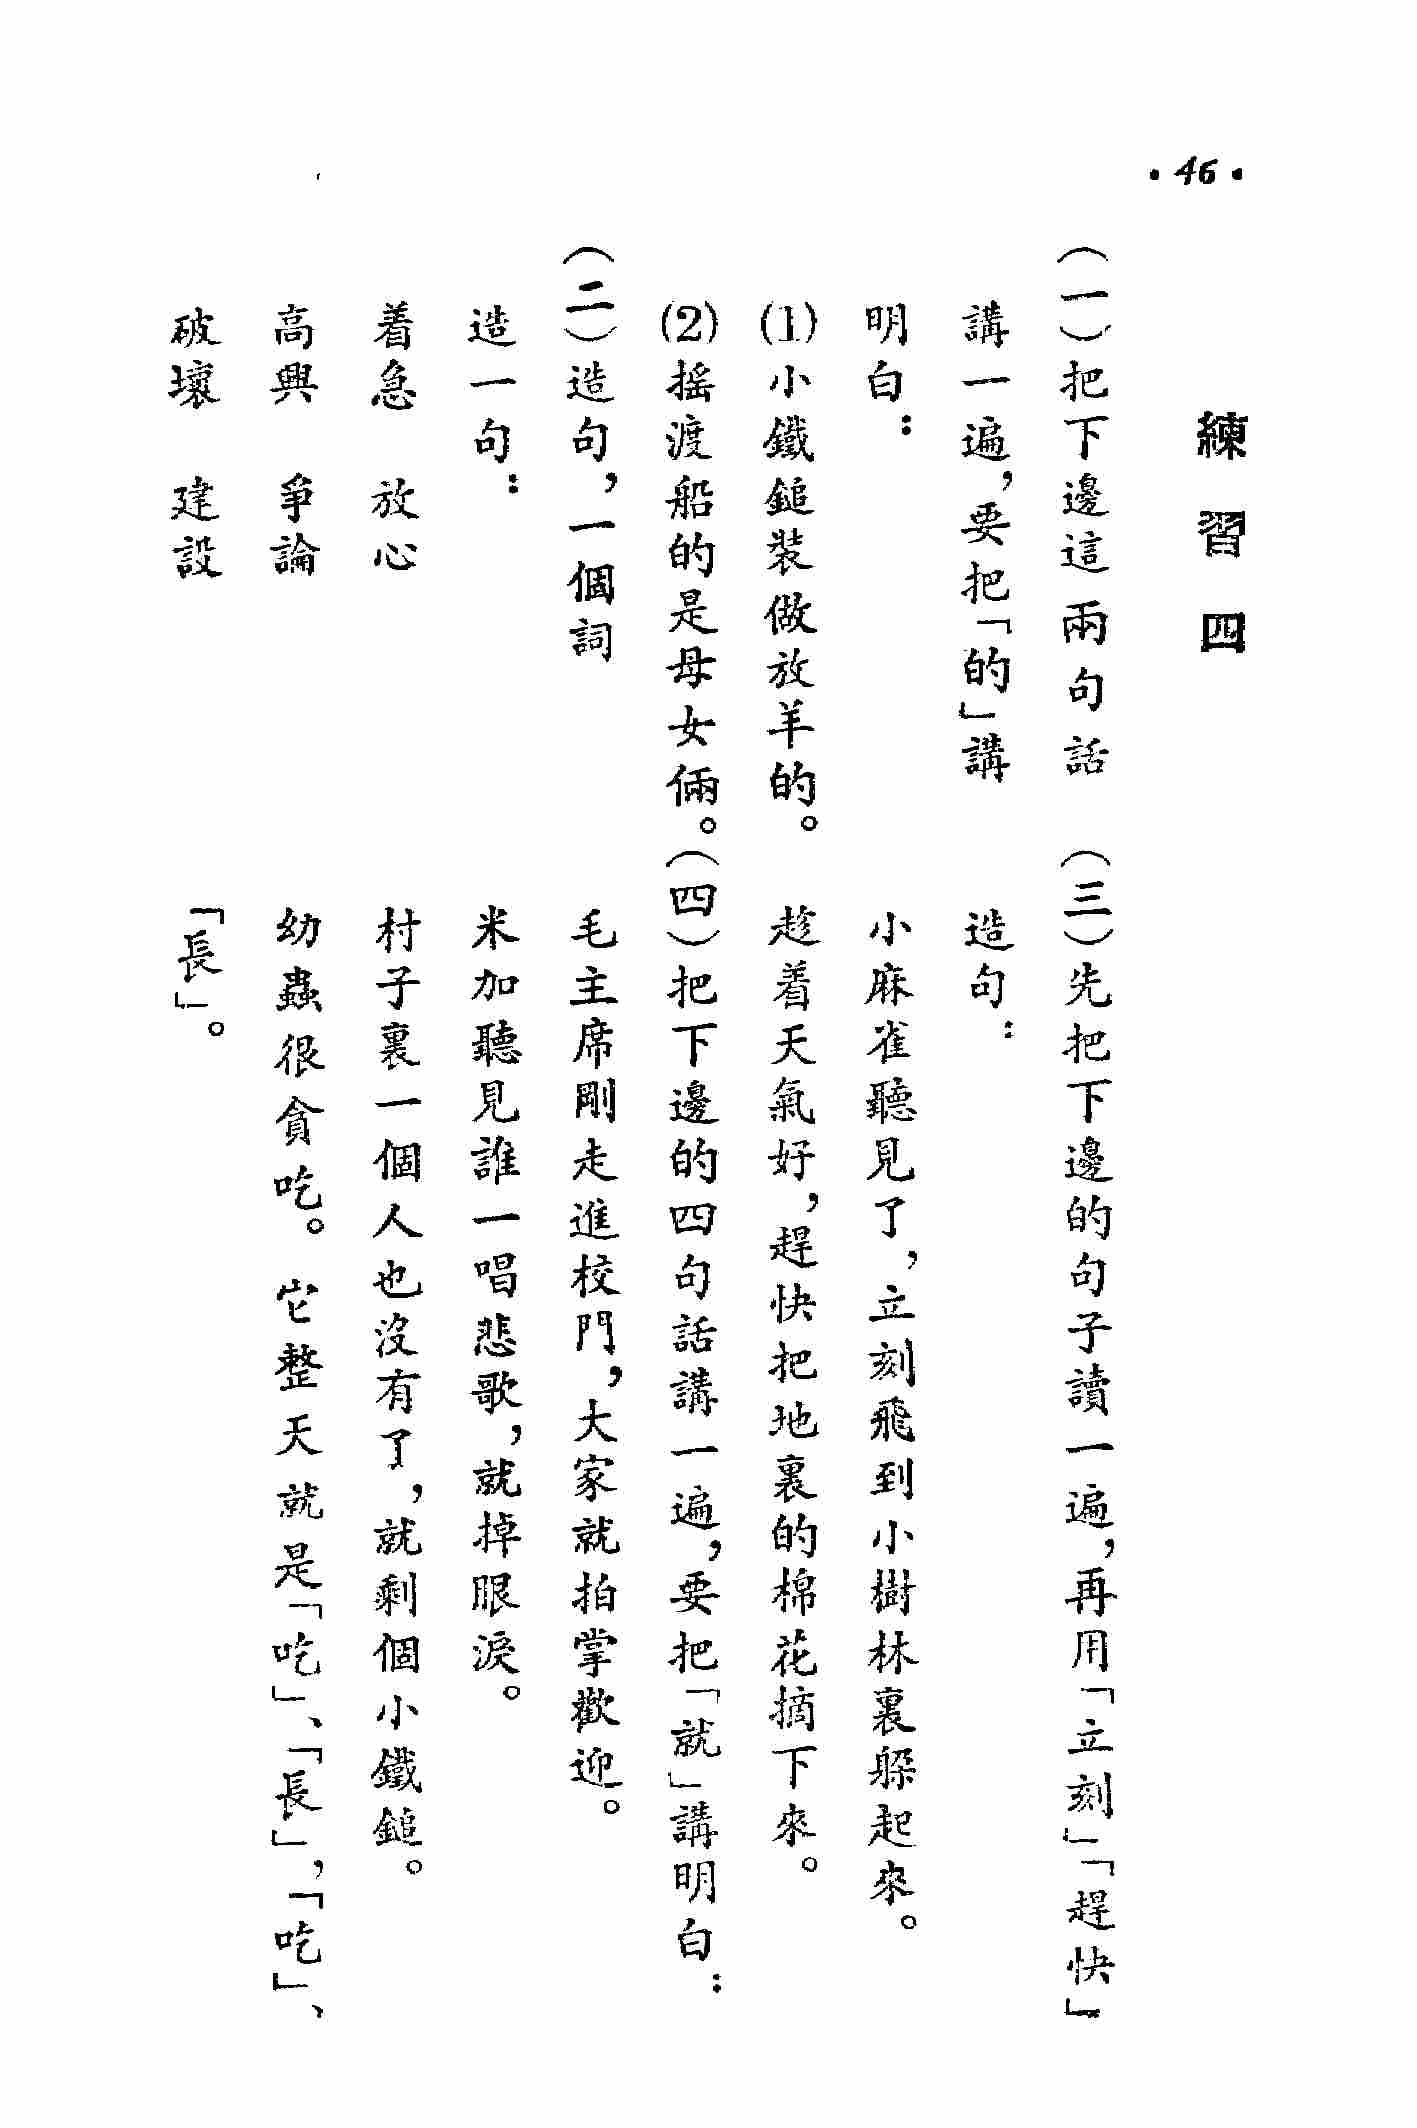 ·46·
練習四
(一)把下邊這兩句話
講一遍,要把「的」講
明白:
(1)小鐵鎚裝做放羊的。
(2)摇渡船的是母女倆。
(二)造句,一個詞
造一句:
着急 放心
高興 爭論
破壞 建設
(三)先把下邊的句子讀一遍,再用「立刻」「趕快」
造句:
小麻雀聽見了,立刻飛到小樹林裏躲起來。
趁着天氣好,趕快把地裏的棉花摘下來。
(四)把下邊的四句話講一遍,要把「就」講明白:
毛主席剛走進校門,大家就拍掌歡迎。
米加聽見誰一唱悲歌,就掉眼淚。
村子裏一個人也沒有了,就剩個小鐵鎚。
幼蟲很貪吃。它整天就是「吃」、「長」,「吃」、
「長」。